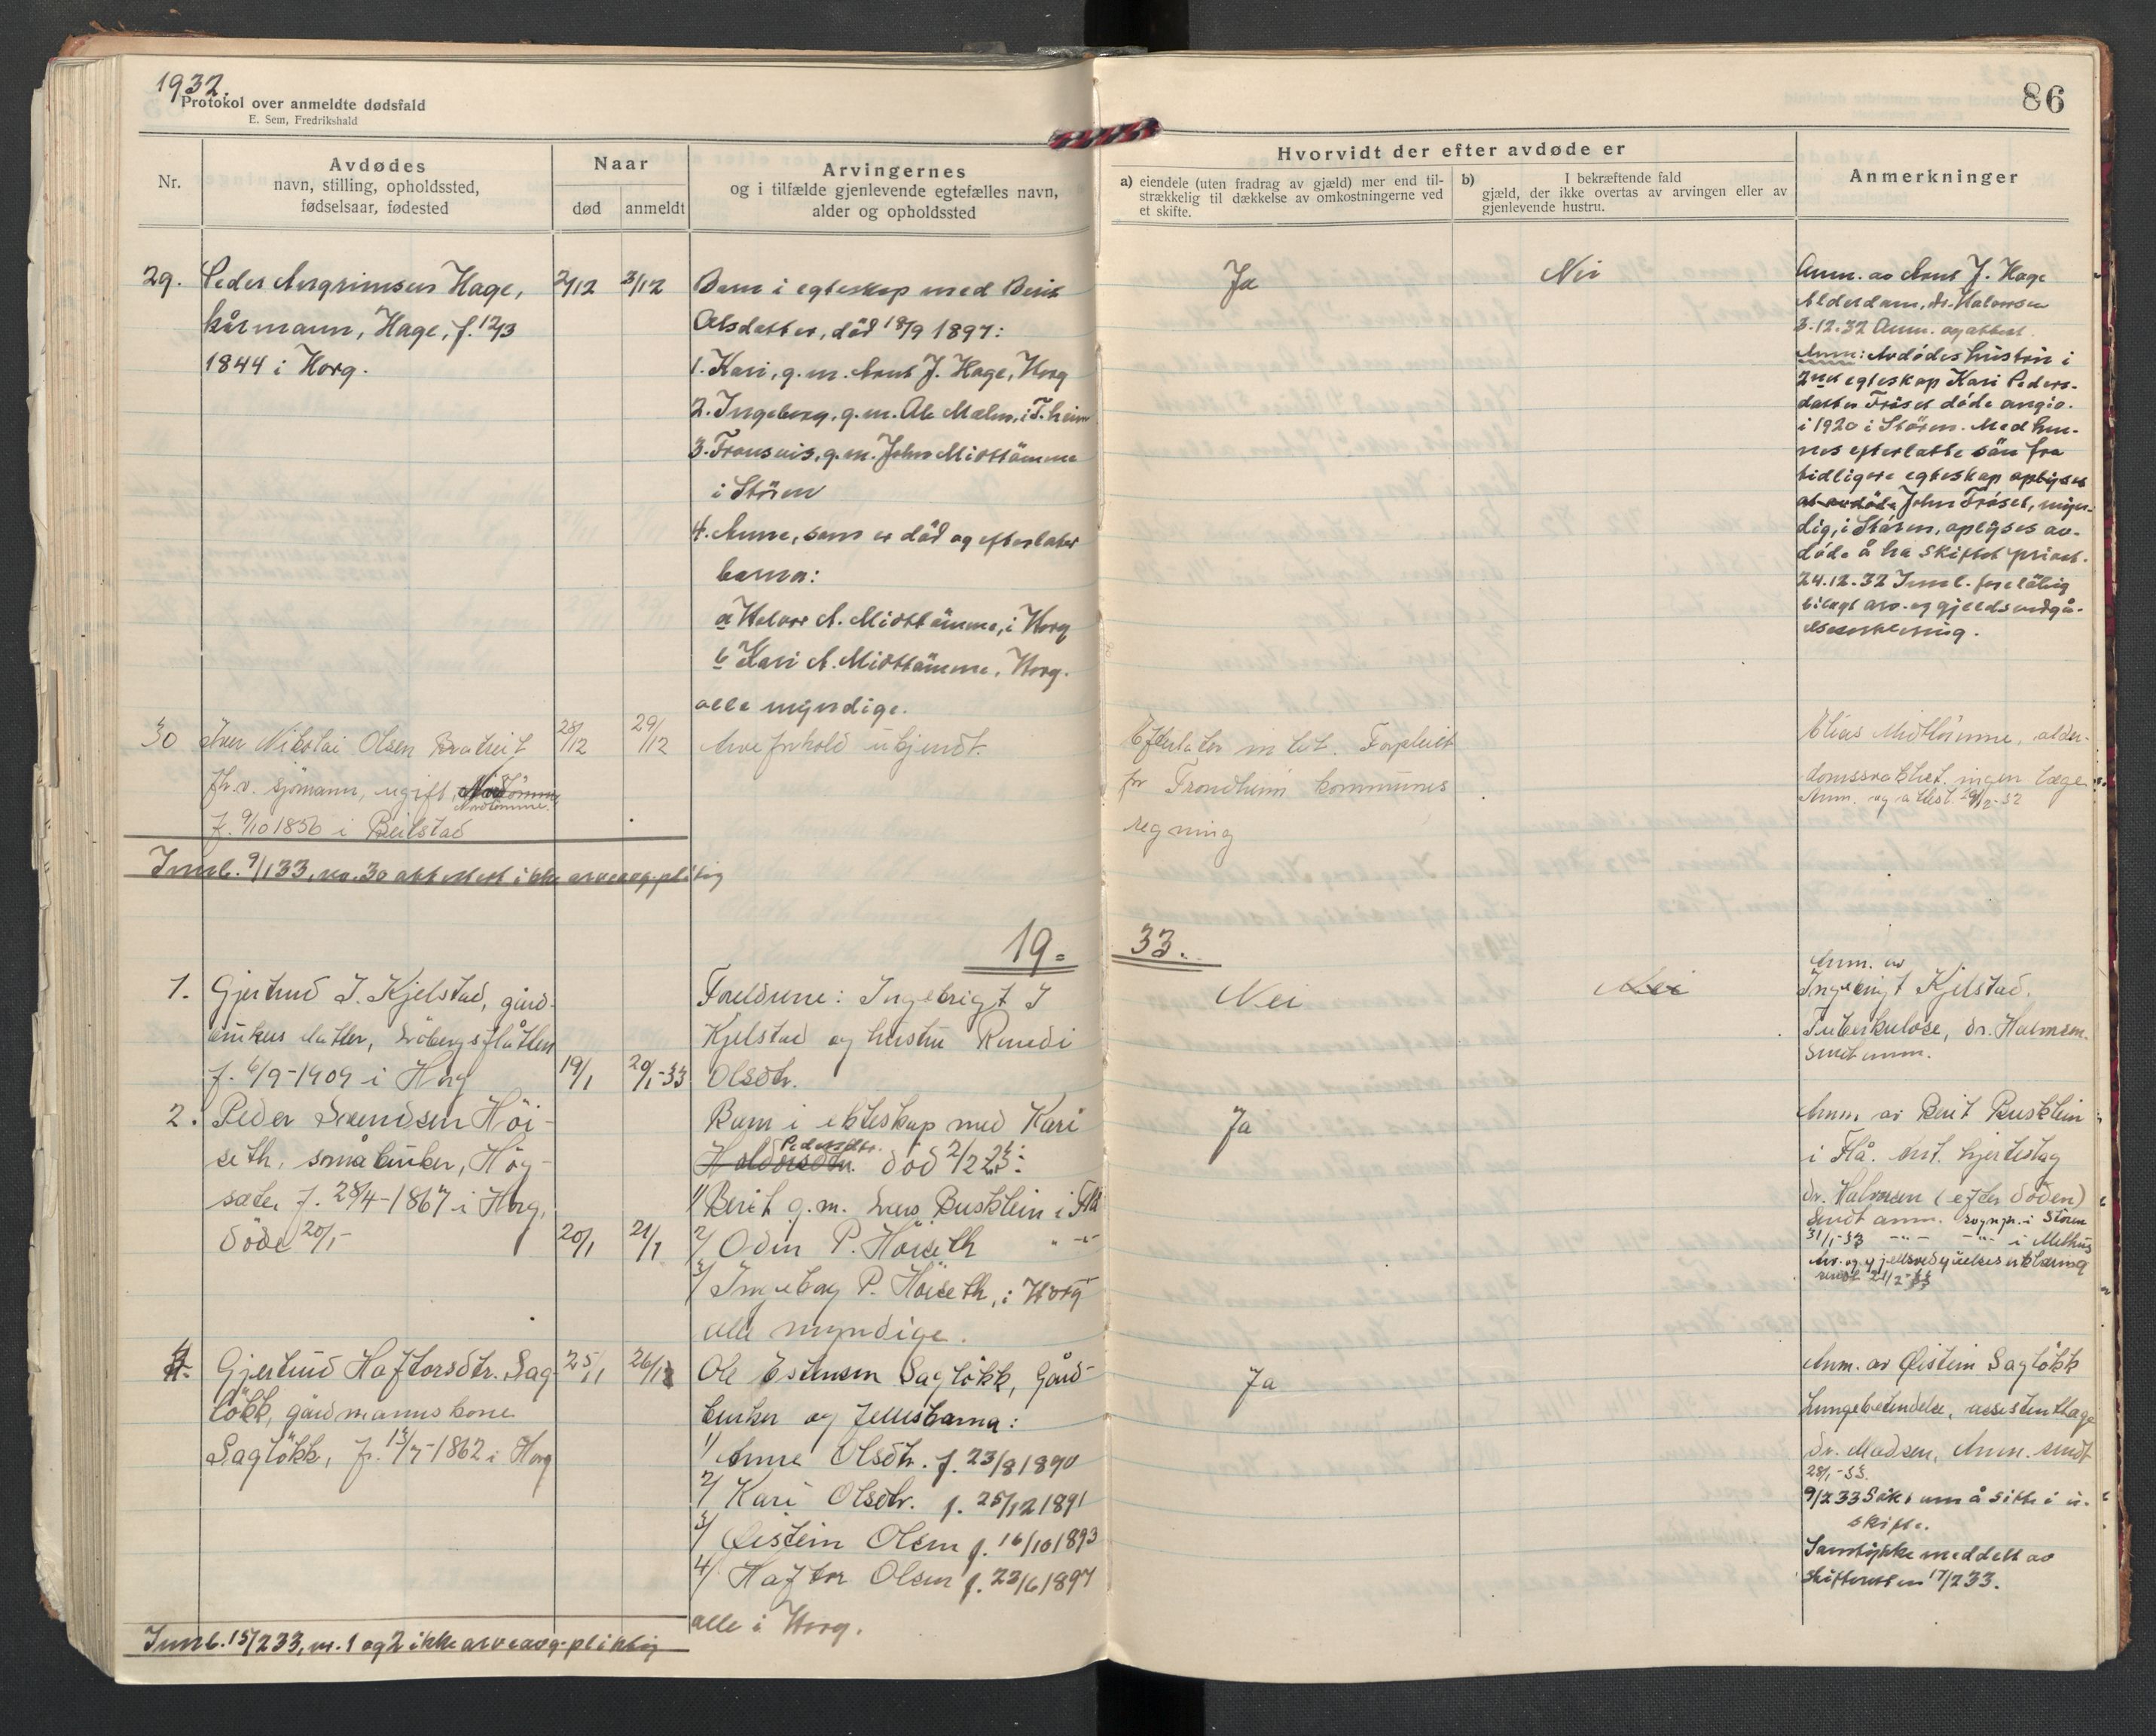 1932.
Protokol over anmeldte dødsfald
E. Sem, Fredrikshald
86
Nr.
Avdødes
navn, stilling, opholdssted,
fødselsaar, fødested
Naar
død
anmeldt
Arvingernes
og i tilfælde gjenlevende egtefælles navn,
alder og opholdssted
Hvorvidt der efter avdøde er
a) eiendele (uten fradrag av gjæld) mer end til-
strækkelig til dækkelse av omkostningerne ved
et skifte.
b) I bekræftende fald
gjæld, der ikke overtas av arvingen eller av
gjenlevende hustru.
Anmerkninger
29.
Peder Arngrimsen Hage,
kårmann, Hage, f. 12/3
1844 i Horg.
2/12
3/12
Barn i egteskap med Berit
Olsdatter, död 18/9 1897:
1. Kari, g.m. Arnt J. Hage, Horg
2. Ingeborg, g.m. Ole Malm, i T.heim
3. Fransois, g.m. John Midttömme
i Stören
4. Anne, som er död og efterlater
barna:
a Halvor A. Midttömme, i Horg
b Kari A. Midttömme, Horg.
alle myndige.
Ja
Nei
Anm. av Arnt J. Hage
Alderdom, dr. Halvorsen
3.12.32 Anm. og attest.
Anm: Avdödes hustru i
2net egteskap Kari Peders-
datter Fröset döde angiv.
i 1920 i Stören. Med hen-
nes efterlatte sön fra
tidligere egteskap oplyses
at avdöde John Fröset, myn-
dig, i Stören, oplyses av-
döde å ha skiftet privat.
24.12.32 Innl. foreløbig
bilagt arv- og gjeldsvedgå-
elseserklering.
30
Iver Nikolai Olsen Bratreit
fh.v. sjömann, ugift,
Nordtömme.
f. 9/10 1856 i Beitstad
28/12
29/12
Arveforhold ukjendt.
Efterlater intet. Forpleiet
for Trondheim kommunes
regning
Elias Midttömme, alder-
domssvakhet. ingen læge
Anm. og attest. 29/12-32
Innb. 9/1 33, nr. 30 attestert ikke arveavg.pliktig
19=
33.
1.
Gjertrud I. Kjelstad, gård-
brukers datter, Sobergsflåtten
f. 6/9-1909 i Horg
19/1
20/1-33
Foreldrene: Ingebrigt J
Kjelstad og hustru Randi
Olsdtr.
Nei
Nei
Anm. av
Ingebrigt Kjelstad.
Tuberkulose, dr. Halvorsen.
Sendt anm.
2.
Peder Svendsen Höi-
seth, småbruker, Høg-
sæte, f. 28/4-1867 i Horg,
döde 20/1-
20/1
21/1
Barn i ekteskap med Kari
Pedersdtr.
Haldorsdtr. död 2/2 23:
1/ Berit g.m. Lars Busklein i Flå
2/ Odin P. Höiseth " -"-
3/ Ingeborg P. Höiseth, i Horg
alle myndige.
Ja
Anm. av Berit Busklein
i Flå. Ant. hjerteslag
dr. Halvorsen (efter döden)
Sendt anm. sognpr. i Stören
31/1-33 -"- -"- i Melhus
Arv. og gjeldsvedgåelseserklæring
sendt 21/2-33
4.
Gjertrud Haftorsdtr. Sag-
lökk, gårdmanns kone
Saglökk, f. 13/7-1862 i Horg
25/1
26/1
Ole Estensen Saglökk, Gård-
bruker og fellesbarna:
1/ Anne Olsdtr. f. 23/8 1890
2/ Kari Olsdtr. f. 25/12 1891
3/ Øistein Olsen f. 16/10 1893
4/ Haftor Olsen f. 23/6 1897
alle i Horg.
Ja
Anm. av Øistein Saglökk
Lungebetendelse, assistentlæge
Dr. Madsen, Anm. sendt
28/1-33.
9/2 33 Søkt om å sitte i u-
skifte.
Samtykke meddelt av
skifteretten 17/2 33.
Innb. 15/2 33, nr. 1 og 2 ikke arveavg.pliktig